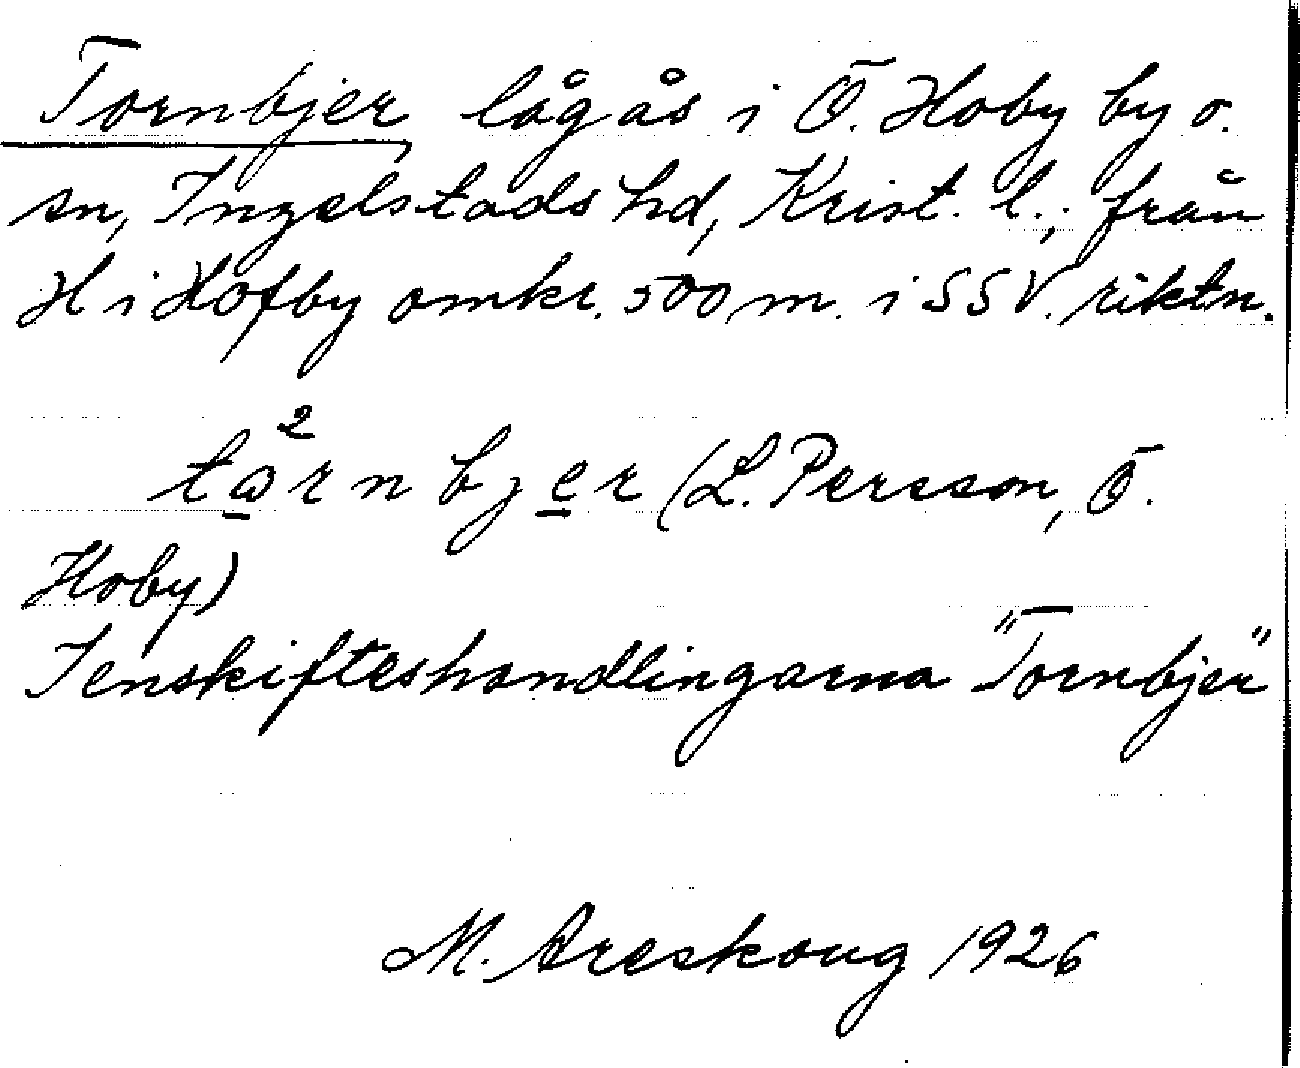 Tornbjer, lågås i Ö. Hoby by o.
sn, Ingelstads hd, Krist. l.; från
H i Hofby omkr. 500 m. i SSV. riktn.
2
tɷrnbjer (L. Persson, Ö.
Hoby)
I enskifteshandlingarna "Tornbjer"
M. Areskoug 1926